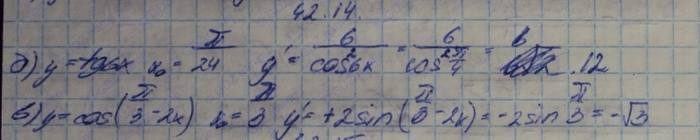 42.14.
б) y = tg6x x₀ = π/24 y' = 6/cos²6x = 6/cos² 6π/4 = 12
в) y = cos(π/3 - 2x) x₀ = π/3 y' = +2sin(π/3 - 2x) = -2sin π/3 = -√3